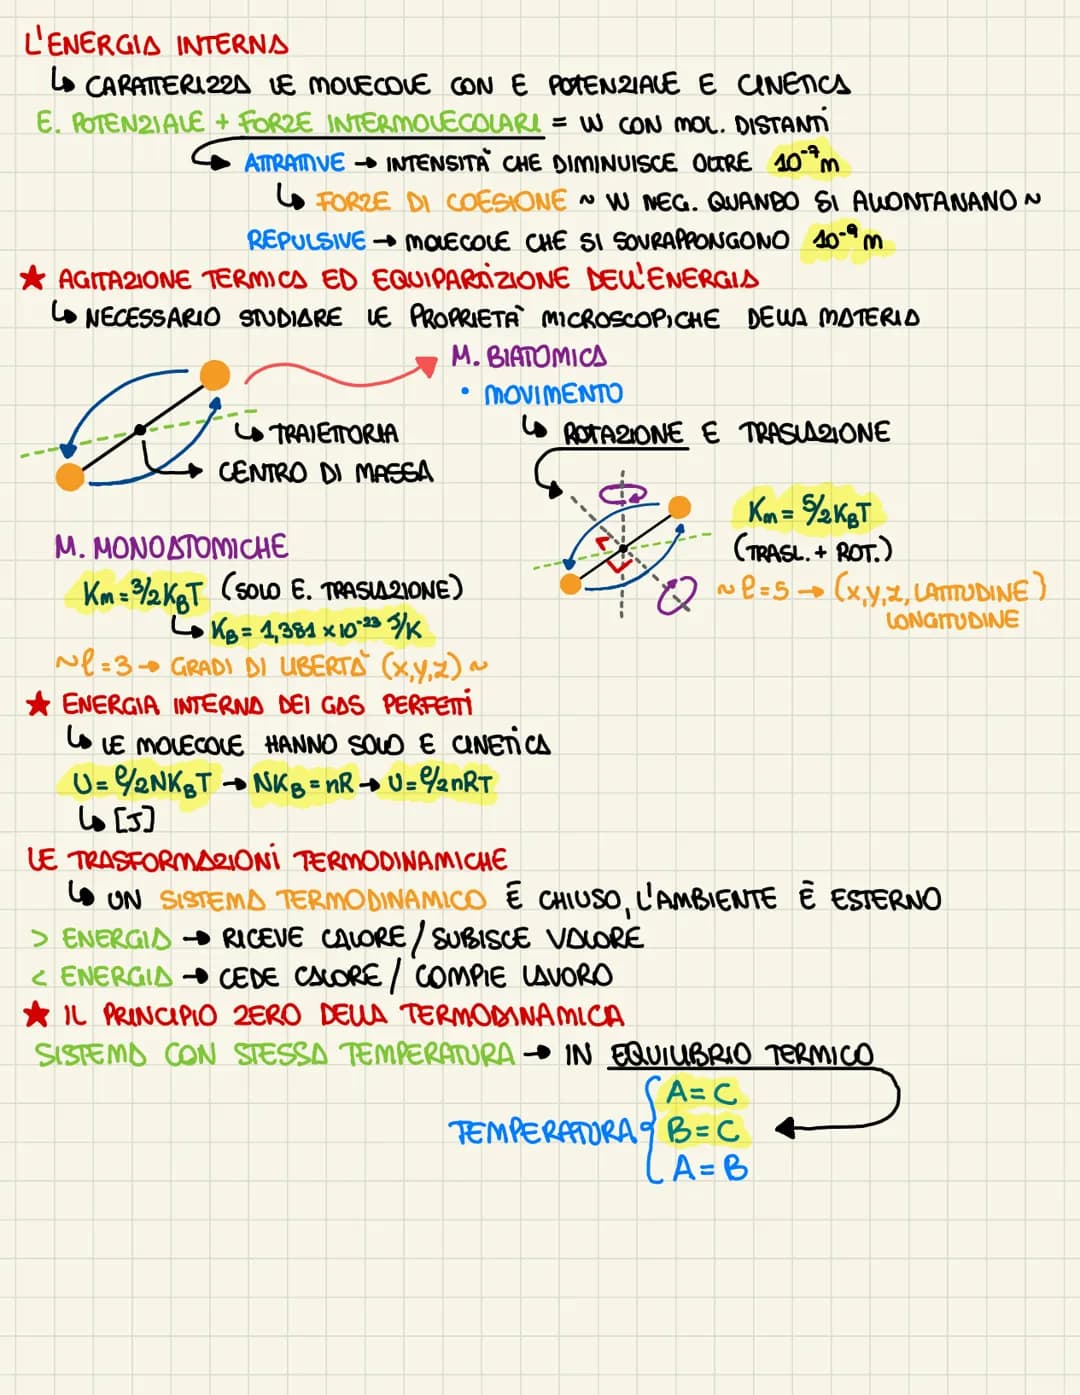 L'ENERGIA INTERNA
↳ CARATTERIZZA LE MOLECOLE CON E POTENZIALE E CINETICA
E. POTENZIALE + FORZE INTERMOLECOLARI = W CON MOL. DISTANTI
ATTRATIVE → INTENSITÀ CHE DIMINUISCE OLTRE 10⁻⁷m
↳ FORZE DI COESIONE ~ W NEG. QUANDO SI ALLONTANANO ~
REPULSIVE → MOLECOLE CHE SI SOVRAPPONGONO 10⁻⁹ m
★ AGITAZIONE TERMICA ED EQUIPARTIZIONE DELL'ENERGIA
↳ NECESSARIO STUDIARE LE PROPRIETÀ MICROSCOPICHE DELLA MATERIA
M. BIATOMICA
• MOVIMENTO
↳ TRAIETTORIA
↳ ROTAZIONE E TRASLAZIONE
CENTRO DI MASSA
Km = 5/2 KBT
(TRASL. + ROT.)
~ℓ=5 → (x,y,z, LATITUDINE)
LONGITUDINE
M. MONOATOMICHE
Km = 3/2 KBT (SOLO E. TRASLAZIONE)
↳ KB = 1,381 × 10⁻²³ J/K
~ℓ=3 → GRADI DI LIBERTÀ (x,y,z) ~
★ ENERGIA INTERNA DEI GAS PERFETTI
↳ LE MOLECOLE HANNO SOLO E CINETICA
U = ℓ/2NKBT → NKB = nR → U = ℓ/2 nRT
↳ [J]
LE TRASFORMAZIONI TERMODINAMICHE
↳ UN SISTEMA TERMODINAMICO È CHIUSO, L'AMBIENTE È ESTERNO
> ENERGIA → RICEVE CALORE / SUBISCE VALORE
< ENERGIA → CEDE CALORE / COMPIE LAVORO
★ IL PRINCIPIO ZERO DELLA TERMODINAMICA
SISTEMA CON STESSA TEMPERATURA → IN EQUILIBRIO TERMICO
A = C
TEMPERATURA { B = C
A = B